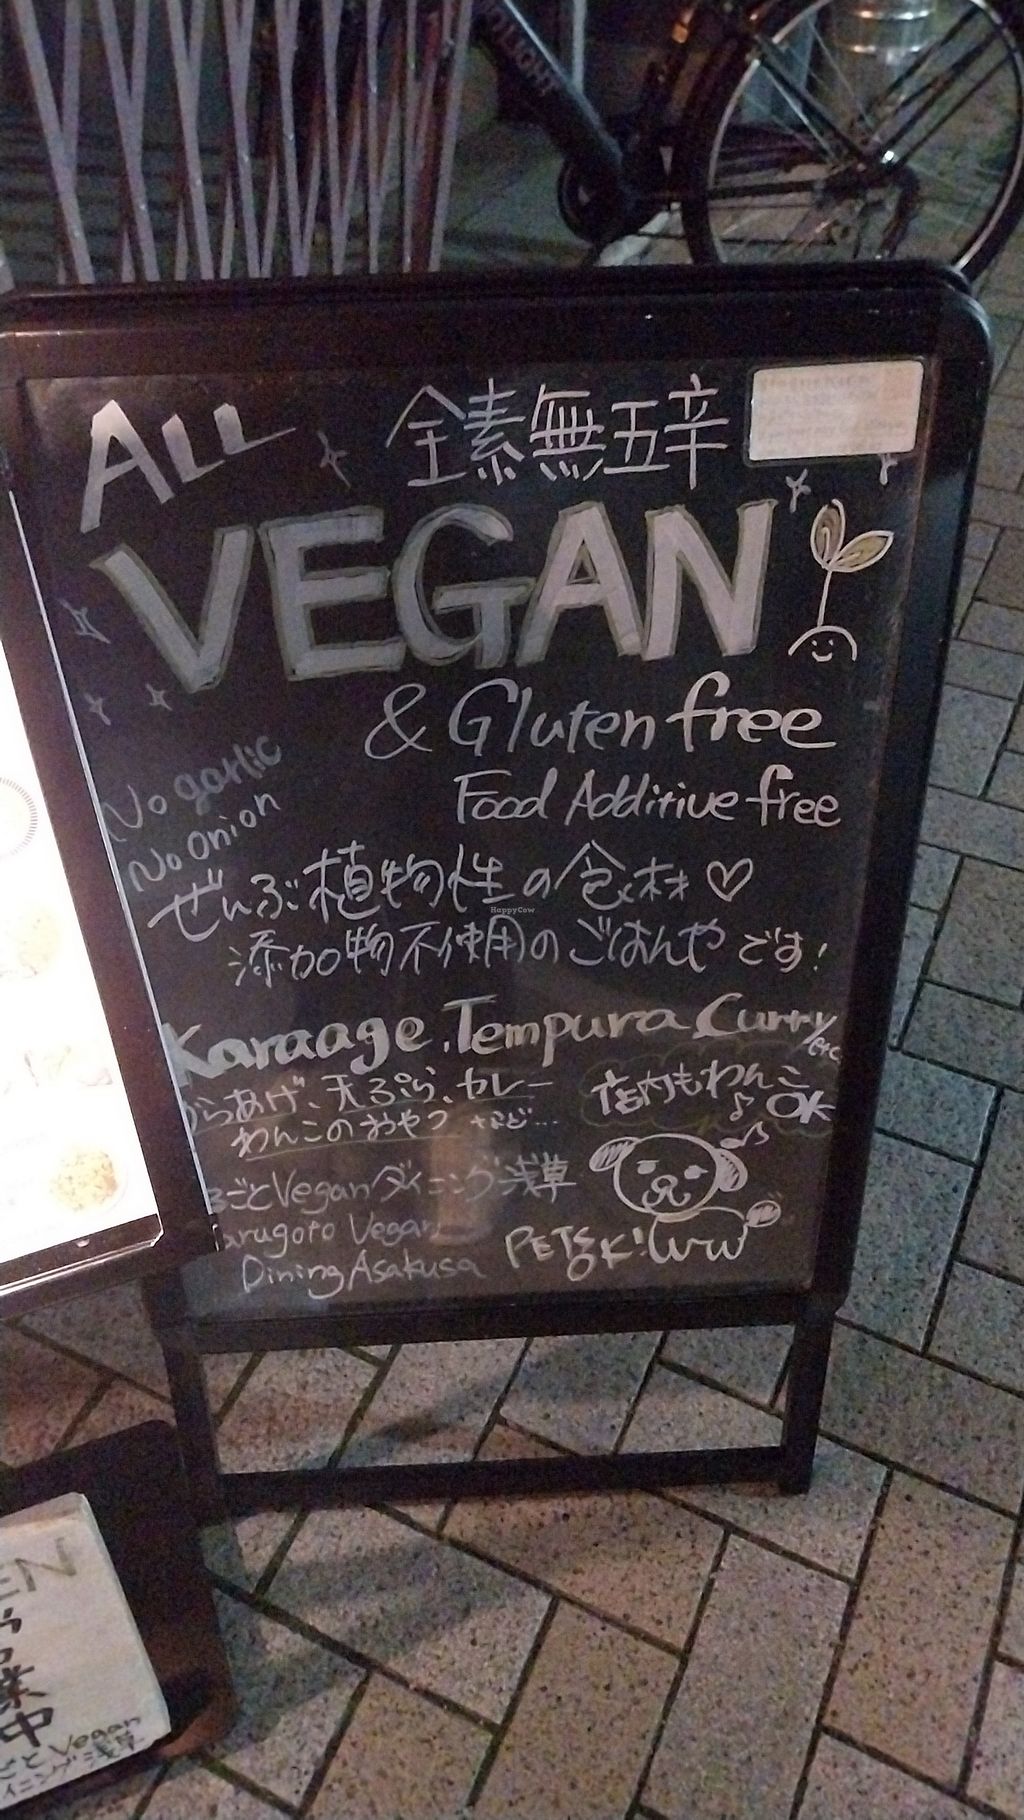 ALL
全素無五辛
VEGAN
& Gluten free
Food Additive free
No garlic
No onion
ぜんぶ植物性の食材♡
添加物不使用のごはんやです!
Karaage, Tempura, Curry/etc.
からあげ、天ぷら、カレー
わんこのおやつ など...
店内もわんこ
OK
るごとVeganダイニング浅草
arugoto Vegan
Dining Asakusa
PETS OK!
HappyCow
EN
業中
ごとVegan
イニング浅草